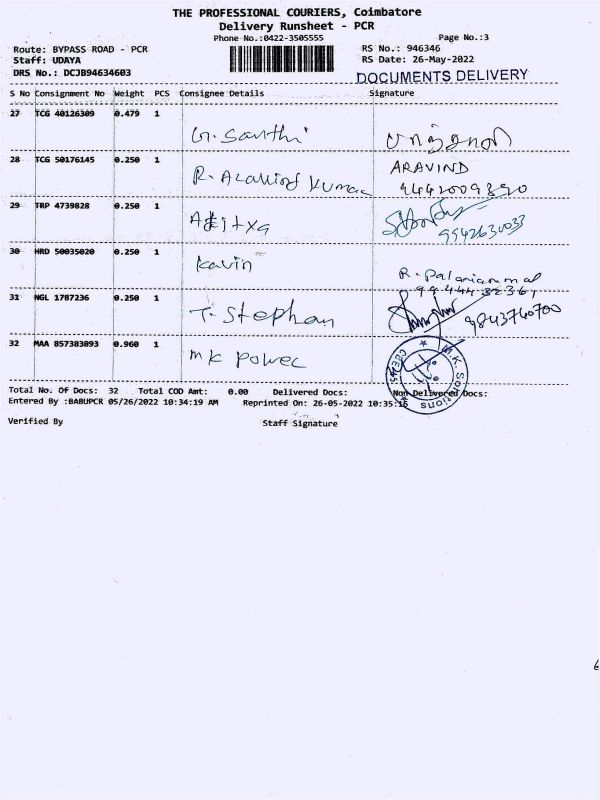 THE PROFESSIONAL COURIERS, Coimbatore
Delivery Runsheet - PCR
Phone No.:0422-3505555 Page No.:3
Route: BYPASS ROAD - PCR RS No.: 946346
Staff: UDAYA RS Date: 26-May-2022
DRS No.: DCJB94634603 DOCUMENTS DELIVERY
S No Consignment No Weight PCS Consignee Details Signature
27 TCG 40126309 0.479 1
G. Santhi
28 TCG 50176145 0.250 1 ARAVIND
R. Aravind Kumar 9442009390
29 TRP 4739828 0.250 1
9942630033
30 HRD 50035020 0.250 1
Kavin R. Palaniammal
31 NGL 1787236 0.250 1
T. Stephan 9843740700
32 MAA 857383893 0.960 1
MK Power
M.K. Solutions
Total No. Of Docs: 32 Total COD Amt: 0.00 Delivered Docs: Non Delivered Docs:
Entered By :BABUPCR 05/26/2022 10:34:19 AM Reprinted On: 26-05-2022 10:35:16
Verified By Staff Signature